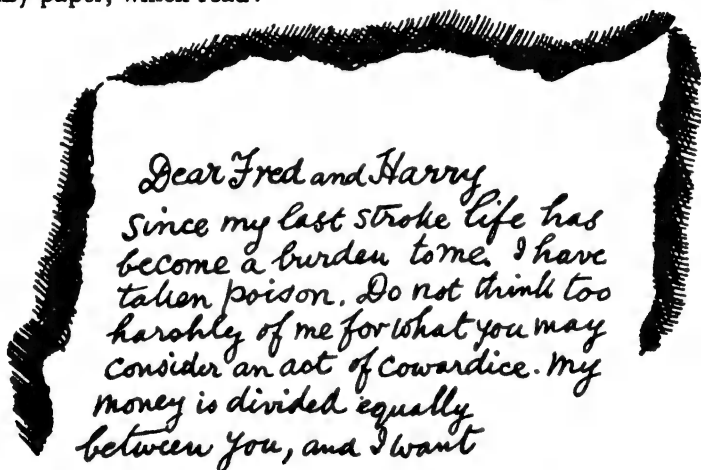 paper, which read:
Dear Fred and Harry
Since my last stroke life has
become a burden to me. I have
taken poison. Do not think too
harshly of me for what you may
consider an act of cowardice. My
money is divided equally
between you, and I want